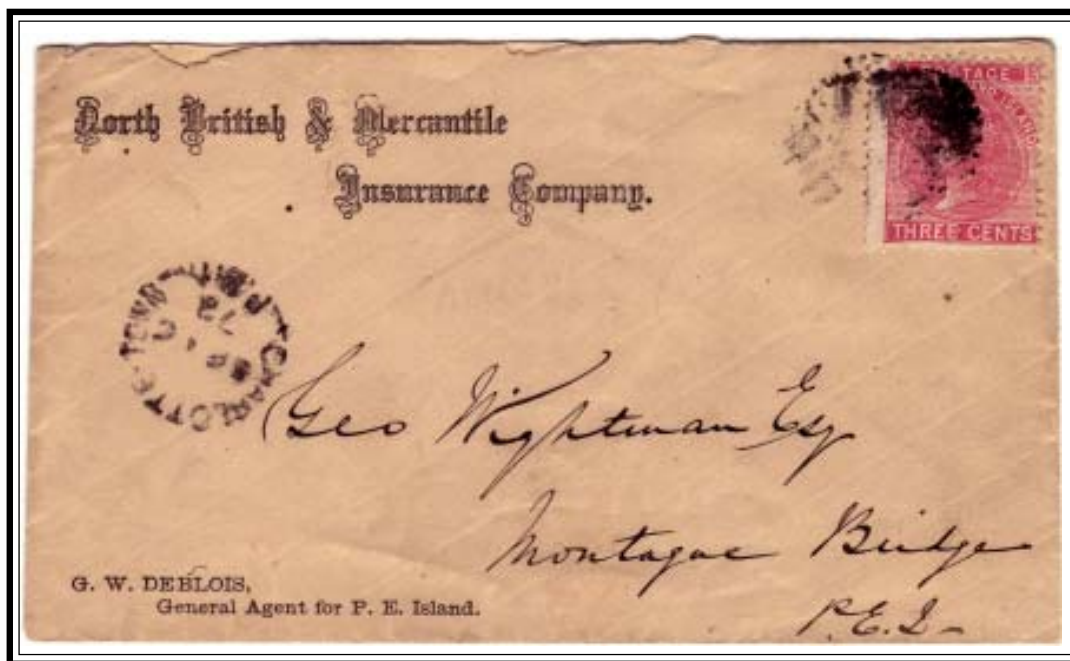 North British & Mercantile
Insurance Company.
POSTAGE
THREE CENTS
CHARLOTTE-TOWN
Geo Wightman Esq
Montague Bridge
P.E.I-
G. W. DEBLOIS,
General Agent for P. E. Island.